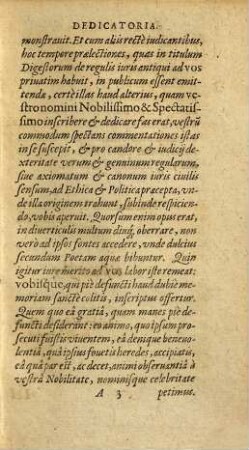 DEDICATORIA.
monstrauit. Et cum aliis rectè iudicantibus,
hoc tempore prælectiones, quas in titulum
Digestorum de regulis iuris antiqui ad vos
priuatim habuit, in publicum essent emit-
tenda, certè illas haud alterius, quam ve-
stro nomini Nobilissimo & Spectatis-
simo inscribere & dedicare fas erat, vestrũ
commodum spectans commentationes istas
in se suscepit, & pro candore & iudicij de-
xteritate verum & genninum regularum,
siue axiomatum & canonum iuris ciuilis
sensum, ad Ethica & Politica præcepta, vn-
de illa originem trahunt, subinde respicien-
do, vobis aperuit. Quorsum enim opus erat,
in diuerticulis multum diuq; oberrare, non
vero ad ipsos fontes accedere, vnde dulcius
secundum Poetam aquæ bibuntur. Quin
igitur iure merito ad vos labor iste remeat:
vobisque, qui piè defuncti haud dubiè me-
moriam sanctè colitis, inscriptus offertur.
Quem quo ea gratiâ, quam manes piè de-
functi desiderant: eo animo, quo ipsum pro-
secuti fuistis viuentem, eâ denique beneuo-
lentiâ, quâ ipsius fouetis heredes, accipiatu,
eâ quâ par est, ac decet, animi obseruantiâ à
vestrâ Nobilitate, nominisque celebritate
A 3 petimus.